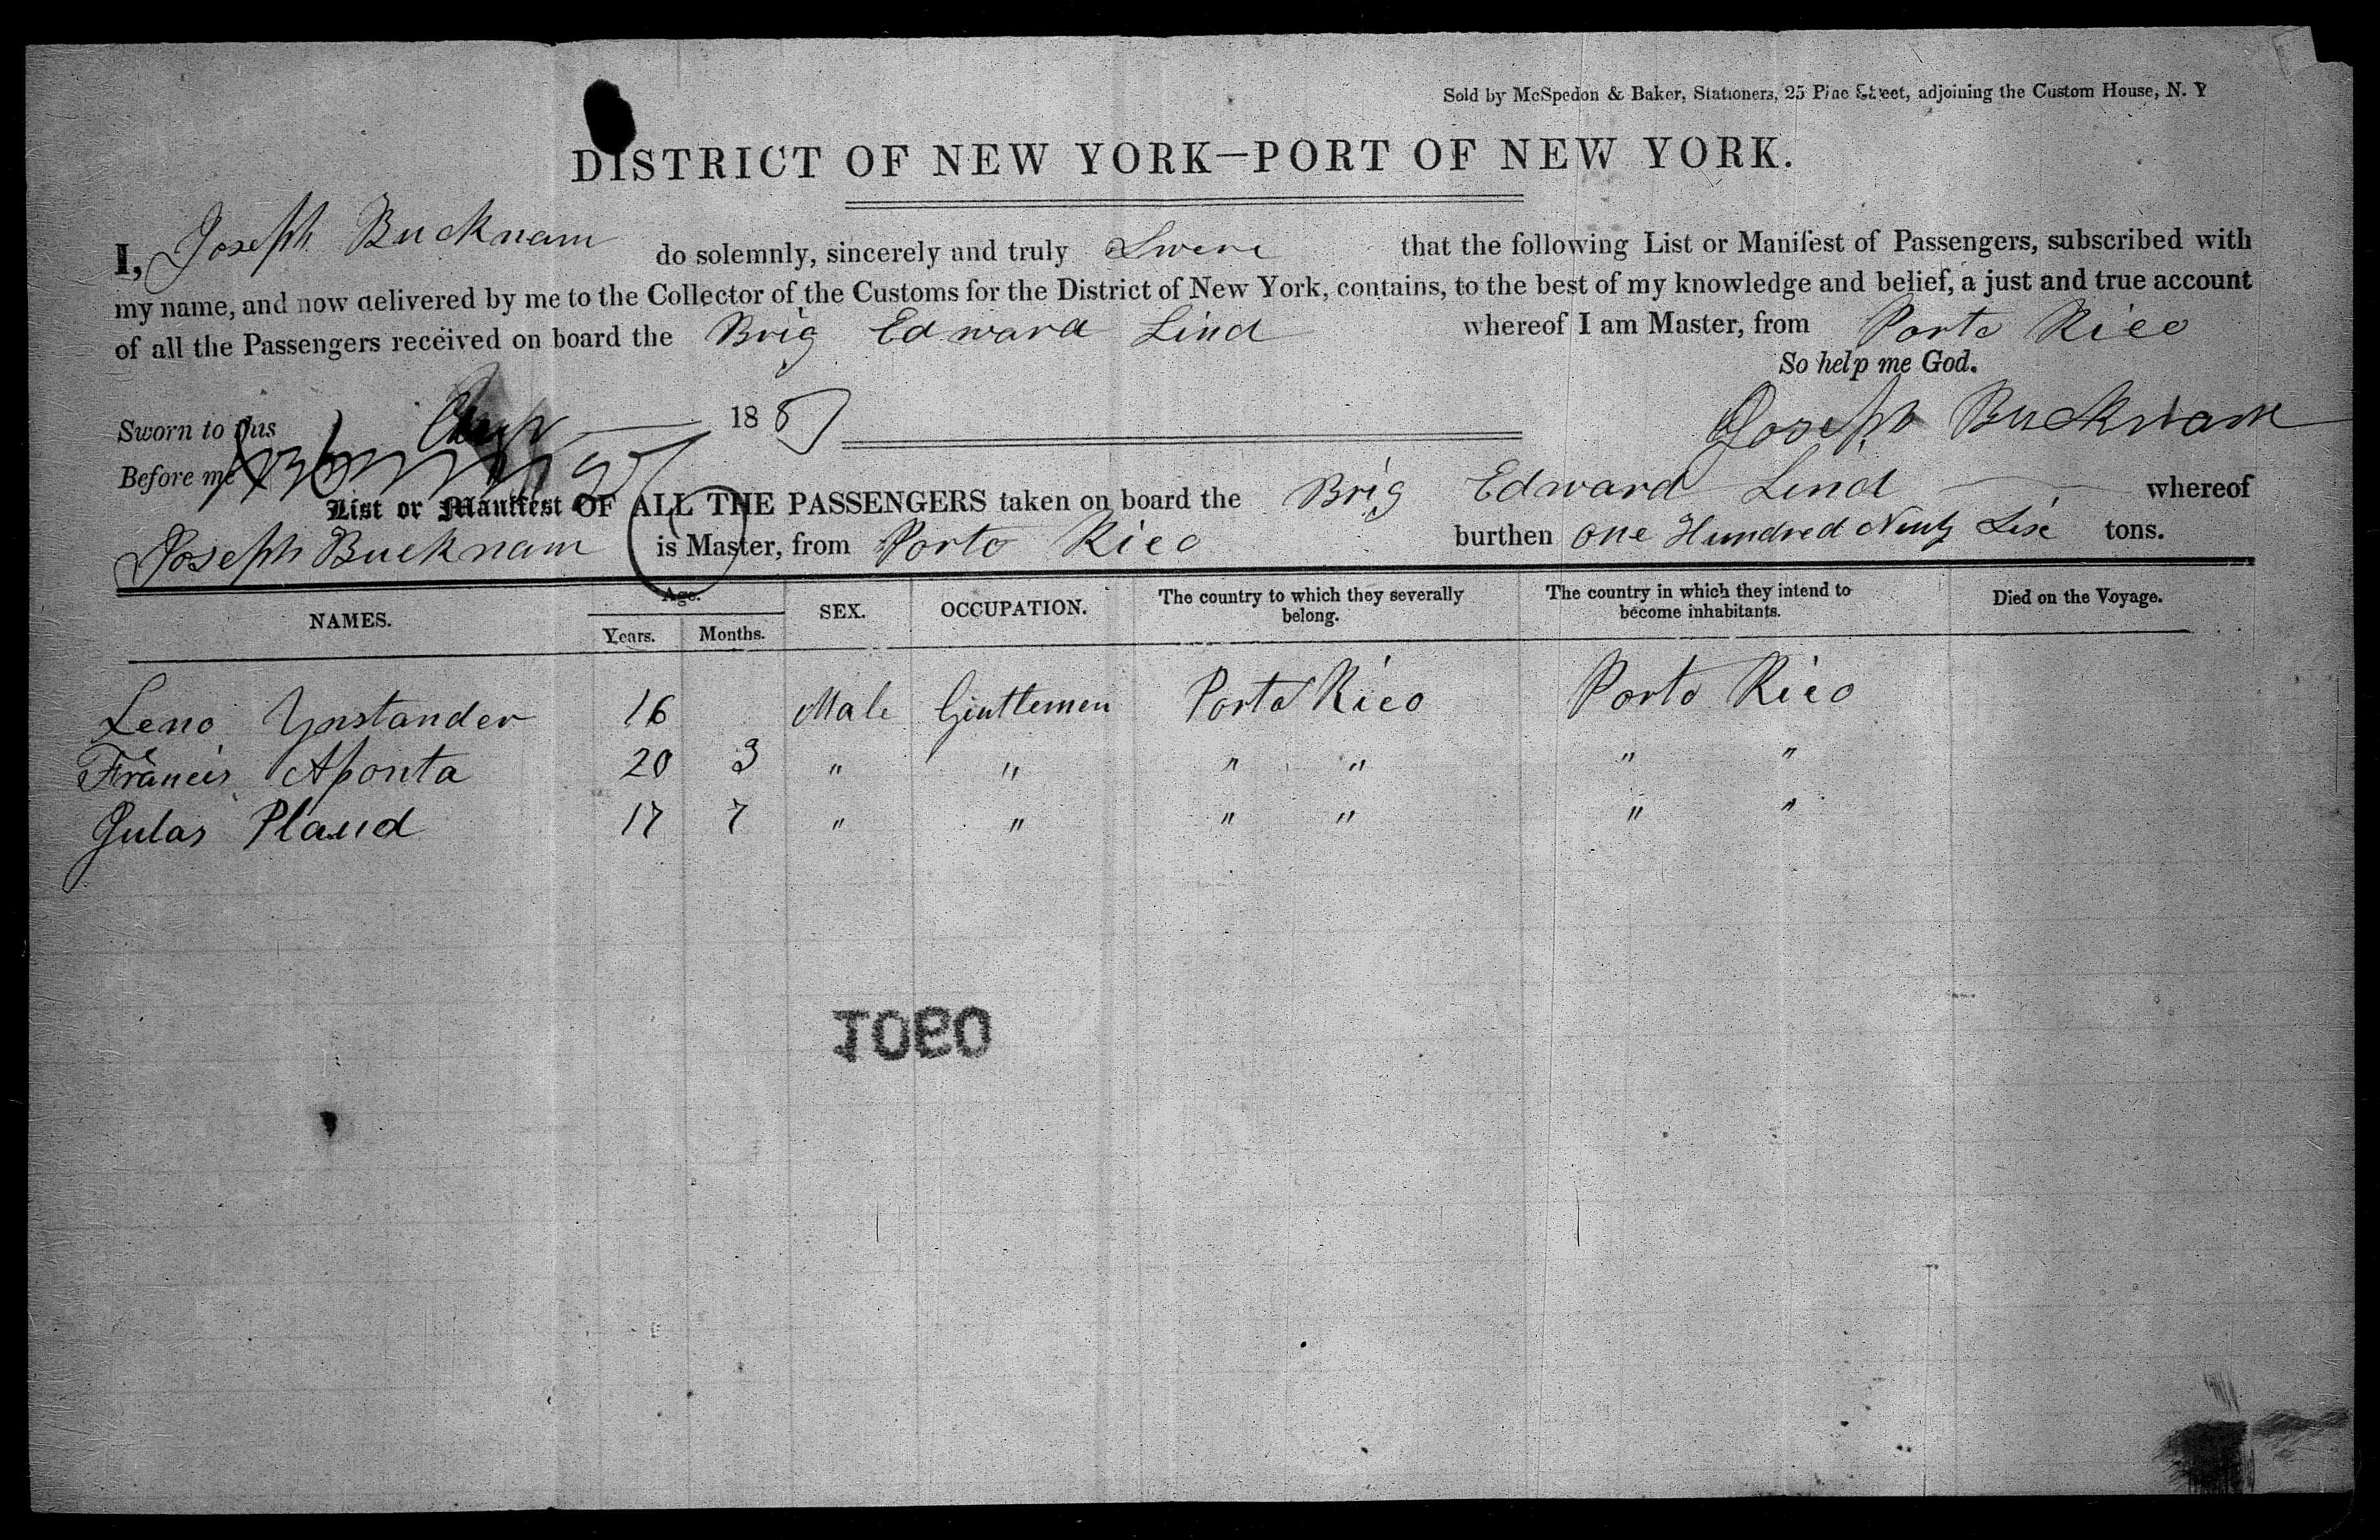 Sold by McSpedon & Baker, Stationers, 25 Pine Street, adjoining the Custom House, N. Y
DISTRICT OF NEW YORK—PORT OF NEW YORK.
I, Joseph Bucknam do solemnly, sincerely and truly Swere that the following List or Manifest of Passengers, subscribed with
my name, and now delivered by me to the Collector of the Customs for the District of New York, contains, to the best of my knowledge and belief, a just and true account
of all the Passengers received on board the Brig Edward Lind whereof I am Master, from Porto Rico
So help me God.
Sworn to this 18
Joseph Bucknam
Before me
List or Manifest OF ALL THE PASSENGERS taken on board the Brig Edward Lind whereof
Joseph Bucknam is Master, from Porto Rico burthen One Hundred Ninty Six tons.
NAMES. Age. Years. Months. SEX. OCCUPATION. The country to which they severally belong. The country in which they intend to become inhabitants. Died on the Voyage.
Leno Ynstander 16 Male Gintlemen Porto Rico Porto Rico
Francis Aponta 20 3 " " " " " "
Julas Plaud 17 7 " " " " " "
1060